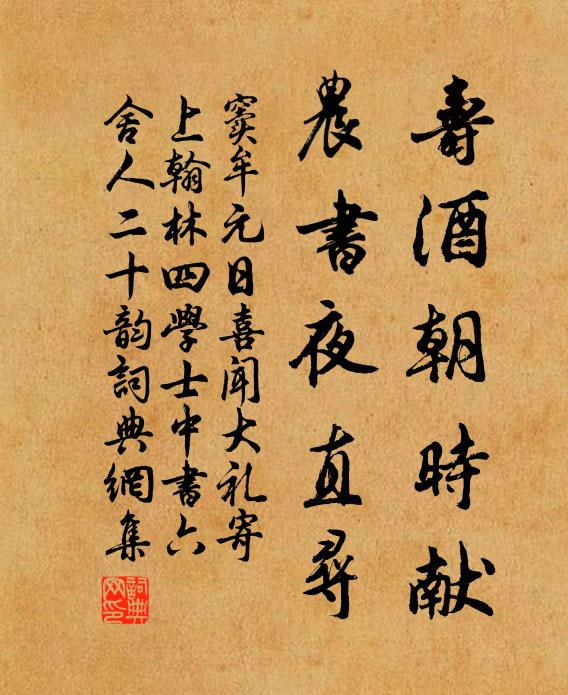 壽酒朝時献
晨書夜直尋
竇牟元日喜聞大礼寄
上翰林四學士中書六
舍人二十韵詞典網集
詞典
网印